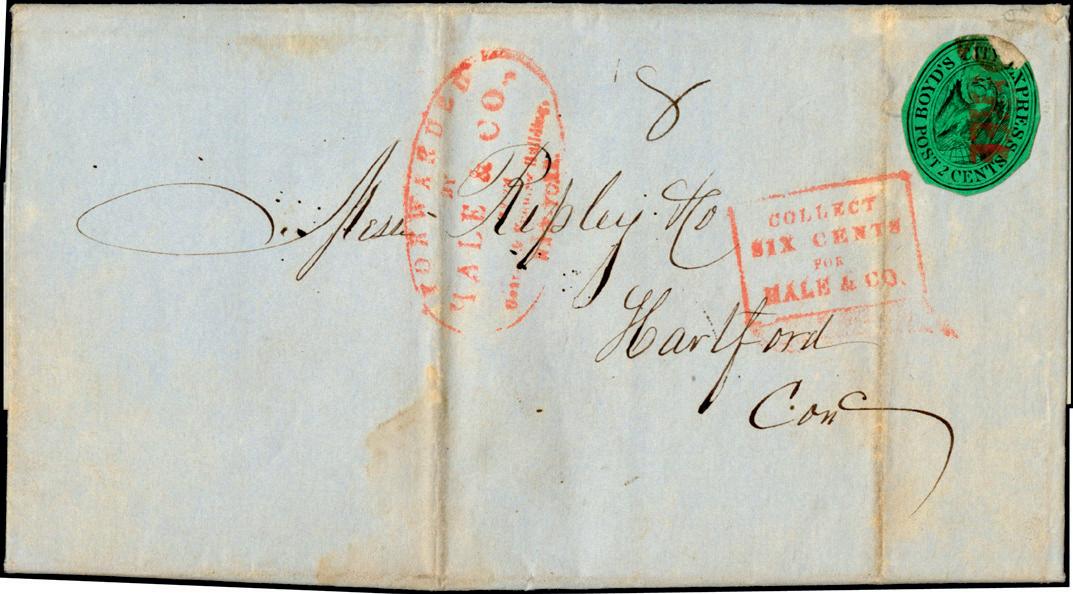 FORWARDED
BY
HALE & CO.
Building,
NEW YORK.
8
BOYD'S CITY EXPRESS
POST 2 CENTS
Mess Ripley & Co
Hartford
Conc
COLLECT
SIX CENTS
FOR
HALE & CO.